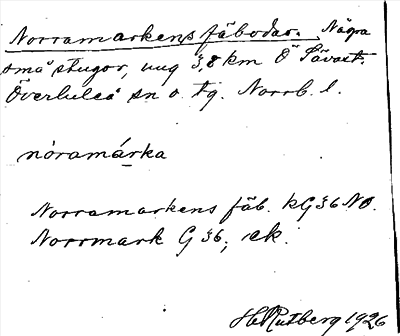 Norramarkens fäbodar. Några
små stugor, ung 3,8 km Ö Sävast.
Överluleå sn o. tg. Norrb. l.
nóramárka
Norramarkens fäb. kG36NO.
Norrmark G36, ek.
H. Rutberg 1926